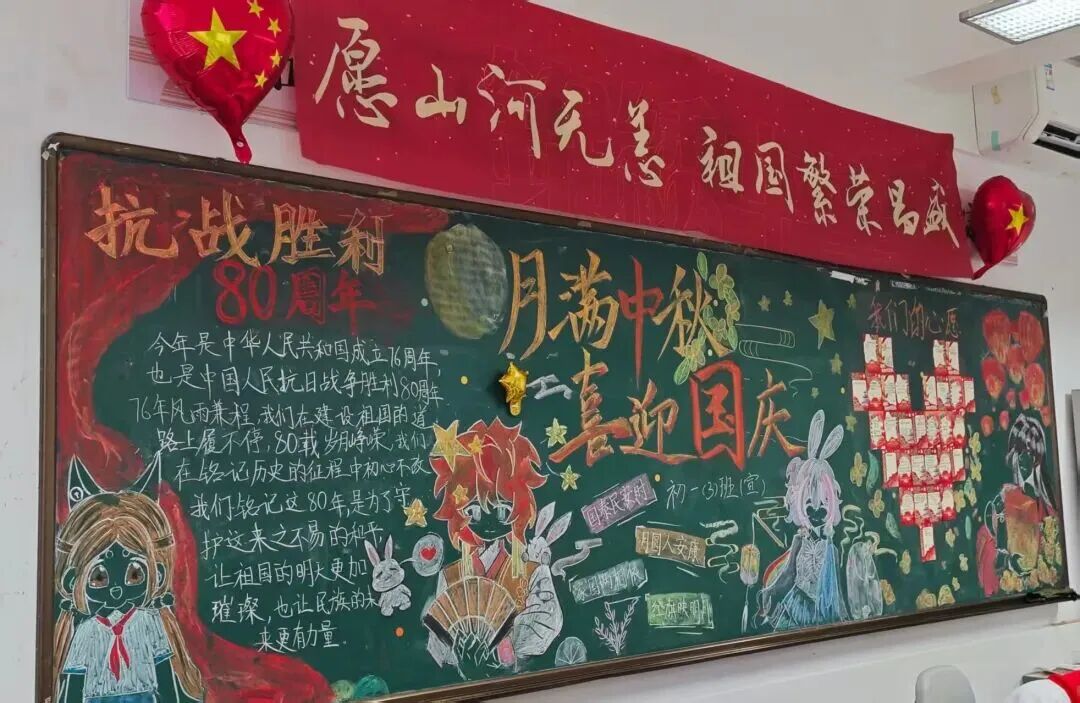 愿山河无恙 祖国繁荣昌盛
抗战胜利
80周年
今年是中华人民共和国成立76周年,
也是中国人民抗日战争胜利80周年
76年风雨兼程,我们在建设祖国的道
路上履不停,80载岁月峥嵘,我们
在铭记历史的征程中初心不改
我们铭记这80年,是为了守
护这来之不易的和平
让祖国的明天更加
璀璨,也让民族的未
来更有力量.
月满中秋
喜迎国庆
初一(3)班(宣)
国泰民安时
月圆人安康
我们的心愿